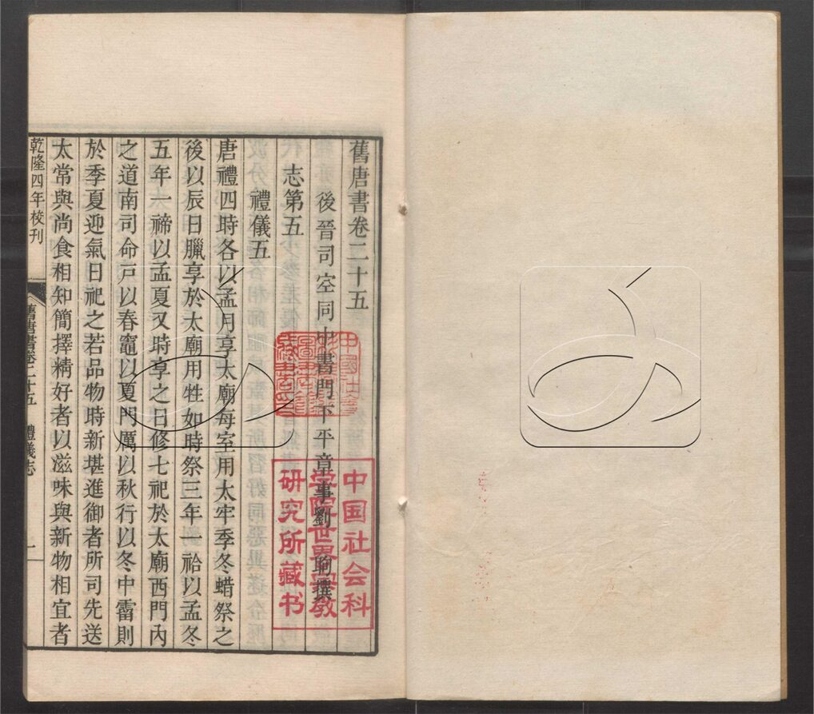 舊唐書卷二十五
後晉司空同中書門下平章事劉昫撰
志第五
禮儀五
唐禮四時各以孟月享太廟每室用太牢季冬蜡祭之
後以辰日臘享於太廟用牲如時祭三年一祫以孟冬
五年一禘以孟夏又時享之日修七祀於太廟西門內
之道南司命戶以春竈以夏門厲以秋行以冬中霤則
於季夏迎氣日祀之若品物時新堪進御者所司先送
太常與尚食相知簡擇精好者以滋味與新物相宜者
乾隆四年校刊
舊唐書卷二十五 禮儀志 一
中国社会科
学院世界宗教
研究所藏书